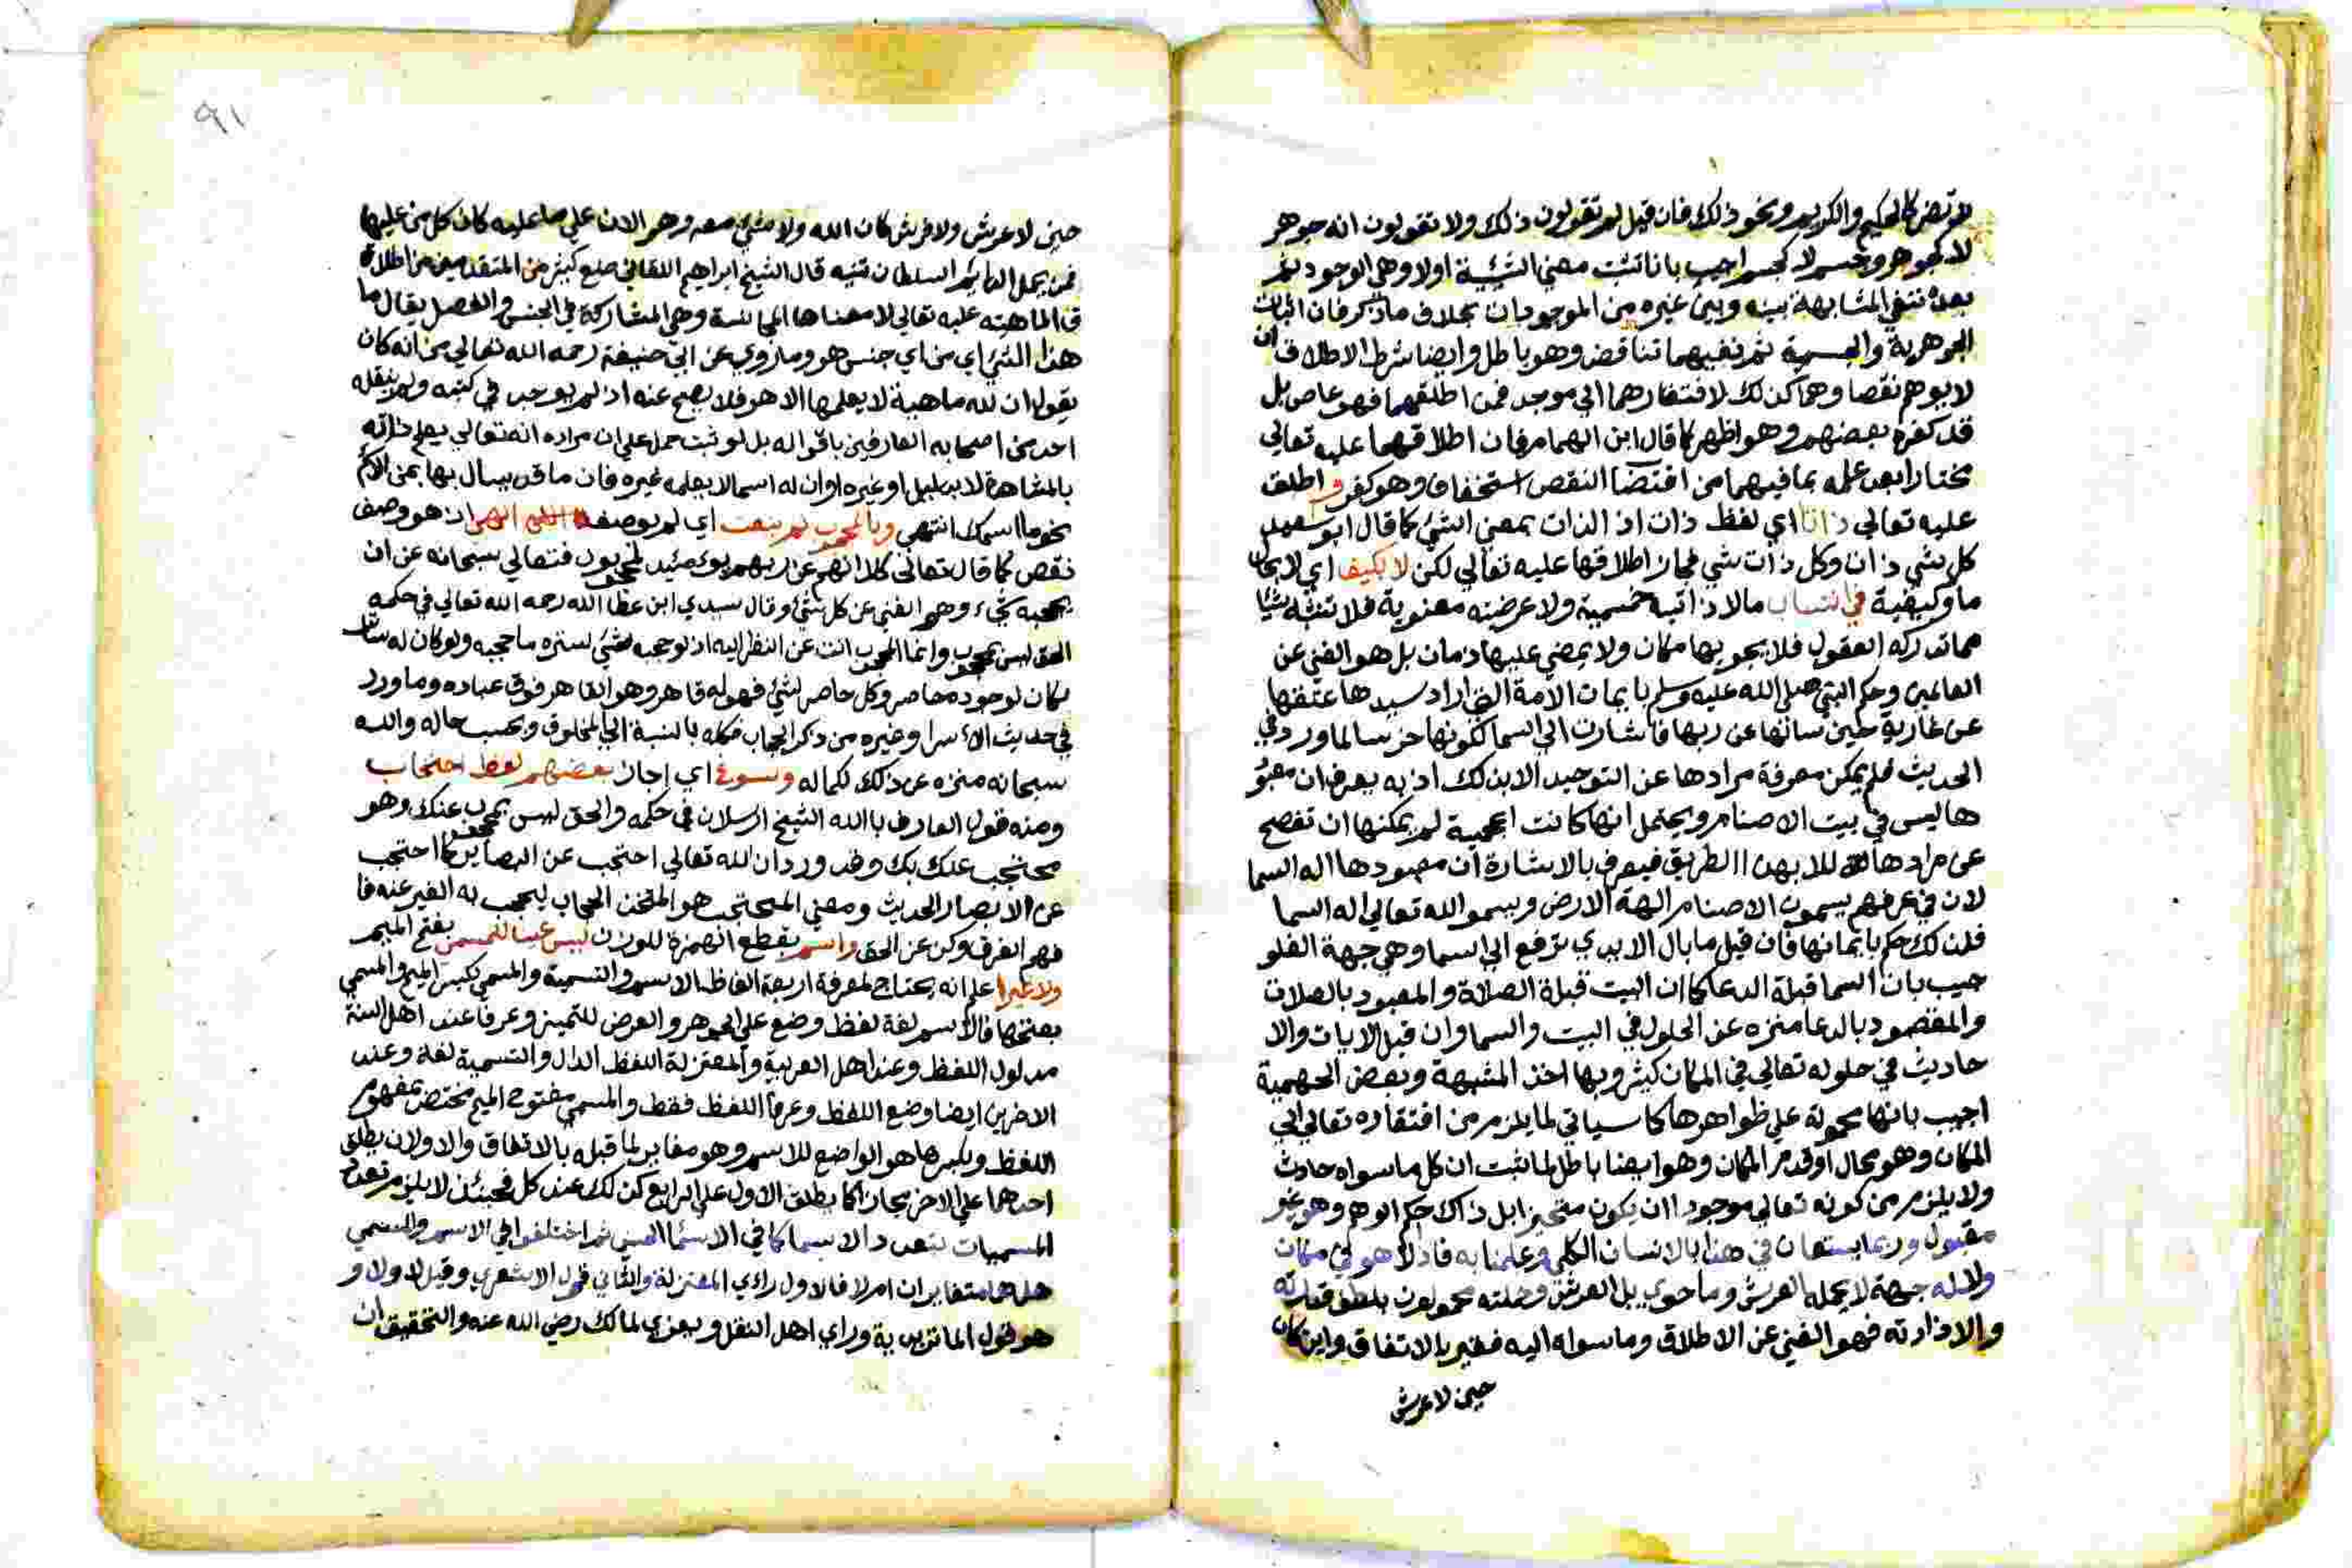 لم تضر كالحكيم والكريم ونحو ذلك فان قيل لم تقولون ذلك ولا تقولون انه جوهر
لا كجوهر وجسم لا كجسم اجيب بانا نثبت معنى الشيئية اولا وهي الوجود ثم
بعده ننفي المشابهة بينه وبين غيره من الموجودات بخلاف ما ذكر فان اثبات
الجوهرية والجسمية ثم نفيهما تناقض وهو باطل وايضا شرط الاطلاق ان
لا يوهم نقصا وهما كذلك لافتقارهما الي موجد فمن اطلقهما فهو عاص بل
قد كفره بعضهم وهو اظهر كما قال ابن الهمام فان اطلاقهما عليه تعالي
مختارا بعد علمه بما فيهما من اقتضا النقص استخفاف وهو كفر و اطلق
عليه تعالي ذاتا اي لفظ ذات اذ الذات بمعني الشئ كما قال ابو سعيد
كل شي ذات وكل ذات شي فجاز اطلاقها عليه تعالي لكن لا بكيف اي لا بحال
ما وكيفية في انتساب ما لا ذاتيه جسمية ولا عرضيه معنوية فلا تشبه شيئا
مما تدركه العقول فلا يحويها مكان ولا يمضي عليها زمان بل هو الغني عن
العالمين وحكم النبي صلي الله عليه وسلم بايمان الامة التي اراد سيدها عتقها
عن حين سالها عن ربها فاشارت الي السما لكونها خرسا لما ورد في
الحديث فلم يمكن معرفة مرادها عن التوحيد الا بذلك اذ به يعرف ان معبو
ها ليس في بيت الاصنام ويحتمل انها كانت اعجمية لم يمكنها ان تفصح
عن مرادها الا بهذا الطريق فيعرف بالاشارة ان معبودها اله السما
لان في عرفهم يسمون الاصنام الهة الارض ويسموا الله تعالي اله السما
فلذلك حكم بايمانها فان قيل ما بال الايدي ترفع الي السما وهي جهة العلو
جيب بان السما قبلة الدعا كما ان البيت قبلة الصلاة والمعبود بالصلاة
والمقصود بالدعا منزه عن الحلول في البيت والسما وان قيل الايات والا
حاديث في حلوله تعالي في المكان كثير وبها اخذ المشبهة وبعض الجهمية
اجيب بانها محمولة علي ظواهرها كما سياتي لما يلزم من افتقاره تعالي الي
المكان وهو محال او قدم المكان وهو ايضا باطل لما ثبت ان كل ما سواه حادث
ولا يلزم من كونه تعالي موجودا ان يكون متحيزا بل ذاك حكم الوهم وهو غير
مقبول وربما يستعان في هذا بالانسان الكلي وعلمنا به فاذ لا هو في مكان
ولا له جهة لا يحمله العرش وما حوي بل العرش وحملته محمولون بلطف قدرته
والا فذاته فهو الغني عن الاطلاق وما سواه اليه فقير بالاتفاق واين كان
حين لا عرش
٩١
حين لا عرش ولا فرش كان الله ولا شئ معه وهو الان علي ما عليه كان كل من عليها
فمن يحمل السلطان تنبيه قال الشيخ ابراهيم اللقاني منع كثير من المتقدمين من اطلا
ق الماهية عليه تعالي لا معناها المجانسة وهي المشاركة في الجنس والفصل يقال ما
هذا الشئ اي من اي جنس هو وما روي عن ابي حنيفة رحمه الله تعالي من انه كان
يقول ان لله ماهية لا يعلمها الا هو فلا يصح عنه اذ لم يوجد في كتبه ولم ينقله
احد من اصحابه العارفين باقواله بل لو ثبت حمل علي ان مراده انه تعالي يعلم ذاته
بالمشاهدة لا بدليل او غيره او ان له اسما لا يعلمه غيره فان ما قد يسال بها عن الاسم
نحو ما اسمك انتهي وبالمحجوب لم ينعت اي لم يوصف اذ هو وصف
نقص كما قال تعالي كلا انهم عن ربهم يومئيذ لمحجوبون فتعالي سبحانه عن ان
يحجبه شئ وهو الغني عن كل شئ وقال سيدي ابن عطا الله رحمه الله تعالي في حكمه
الحق ليس بمحجوب وانما المحجوب انت عن النظر اليه اذ لو حجبه شئ لستره ما حجبه ولو كان له ساتر
لكان لوجوده حاصر وكل حاصر لشئ فهو له قاهر وهو القاهر فوق عباده وما ورد
في حديث الاسرا وغيره من ذكر الحجاب فكله بالنسبة الي المخلوق وبحسب حاله والله
سبحانه منزه عن ذلك لكماله وسوغ اي اجاز بعضهم لفظ احتجاب
ومنه قول العارف باالله الشيخ ارسلان في حكمه والحق ليس بمحجوب عنك وهو
محتجب عنك بك وقد ورد ان الله تعالي احتجب عن البصاير كما احتجب
عن الابصار الحديث ومعني المحتجب هو المتخذ الحجاب ليحجب به الغير عنه فا
فهم الفرق وكن عن الحق واسم بقطع الهمزة للوزن ليس عينا للمسمي بفتح الميم
ولا غيرا علم انه يحتاج لمعرفة اربعة الفاظ الاسم والتسمية والمسمي بكسر الميم والمسمي
بفتحها فالاسم لغة لفظ وضع علي الجوهر والعرض للتميز وعرفا عند اهل السنة
مدلول اللفظ وعند اهل العربية والمعتزلة اللفظ الدال والتسمية لغة وعند
الاخرين ايضا وضع اللفظ وعرفا اللفظ فقط والمسمي مفتوح الميم مختص بمفهوم
اللفظ وبكسرها هو الواضع للاسم وهو مغاير لما قبله بالاتفاق والاولان يطلق
احدهما علي الاخر مجازا كما يطلق الاول علي الرابع كذلك عند كل فحينئذ لا يلزم تعدد
المسميات بتعدد الاسما كما في الاسماالحسني ثم اختلفوا في الاسم والمسمي
هل هما متغايران ام لا فالاول راي المعتزلة والثاني قول الاشعري وقيل لا ولا و
هو قول الماتريدية وراي اهل النقل ويعزي لمالك رضي الله عنه والتحقيق ان